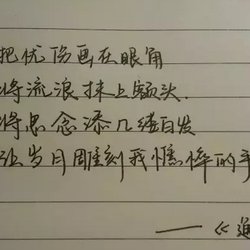 把忧伤画在眼角
将流浪抹上额头
将思念添几缕白发
让岁月雕刻我憔悴的手
——《通